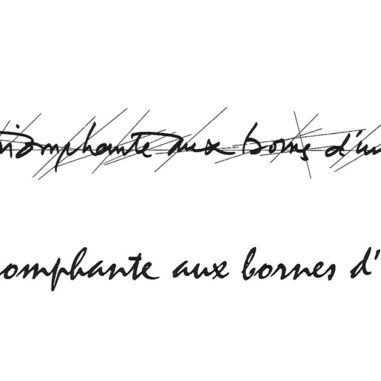 riomphante aux bornes d'un
omphante aux bornes d'